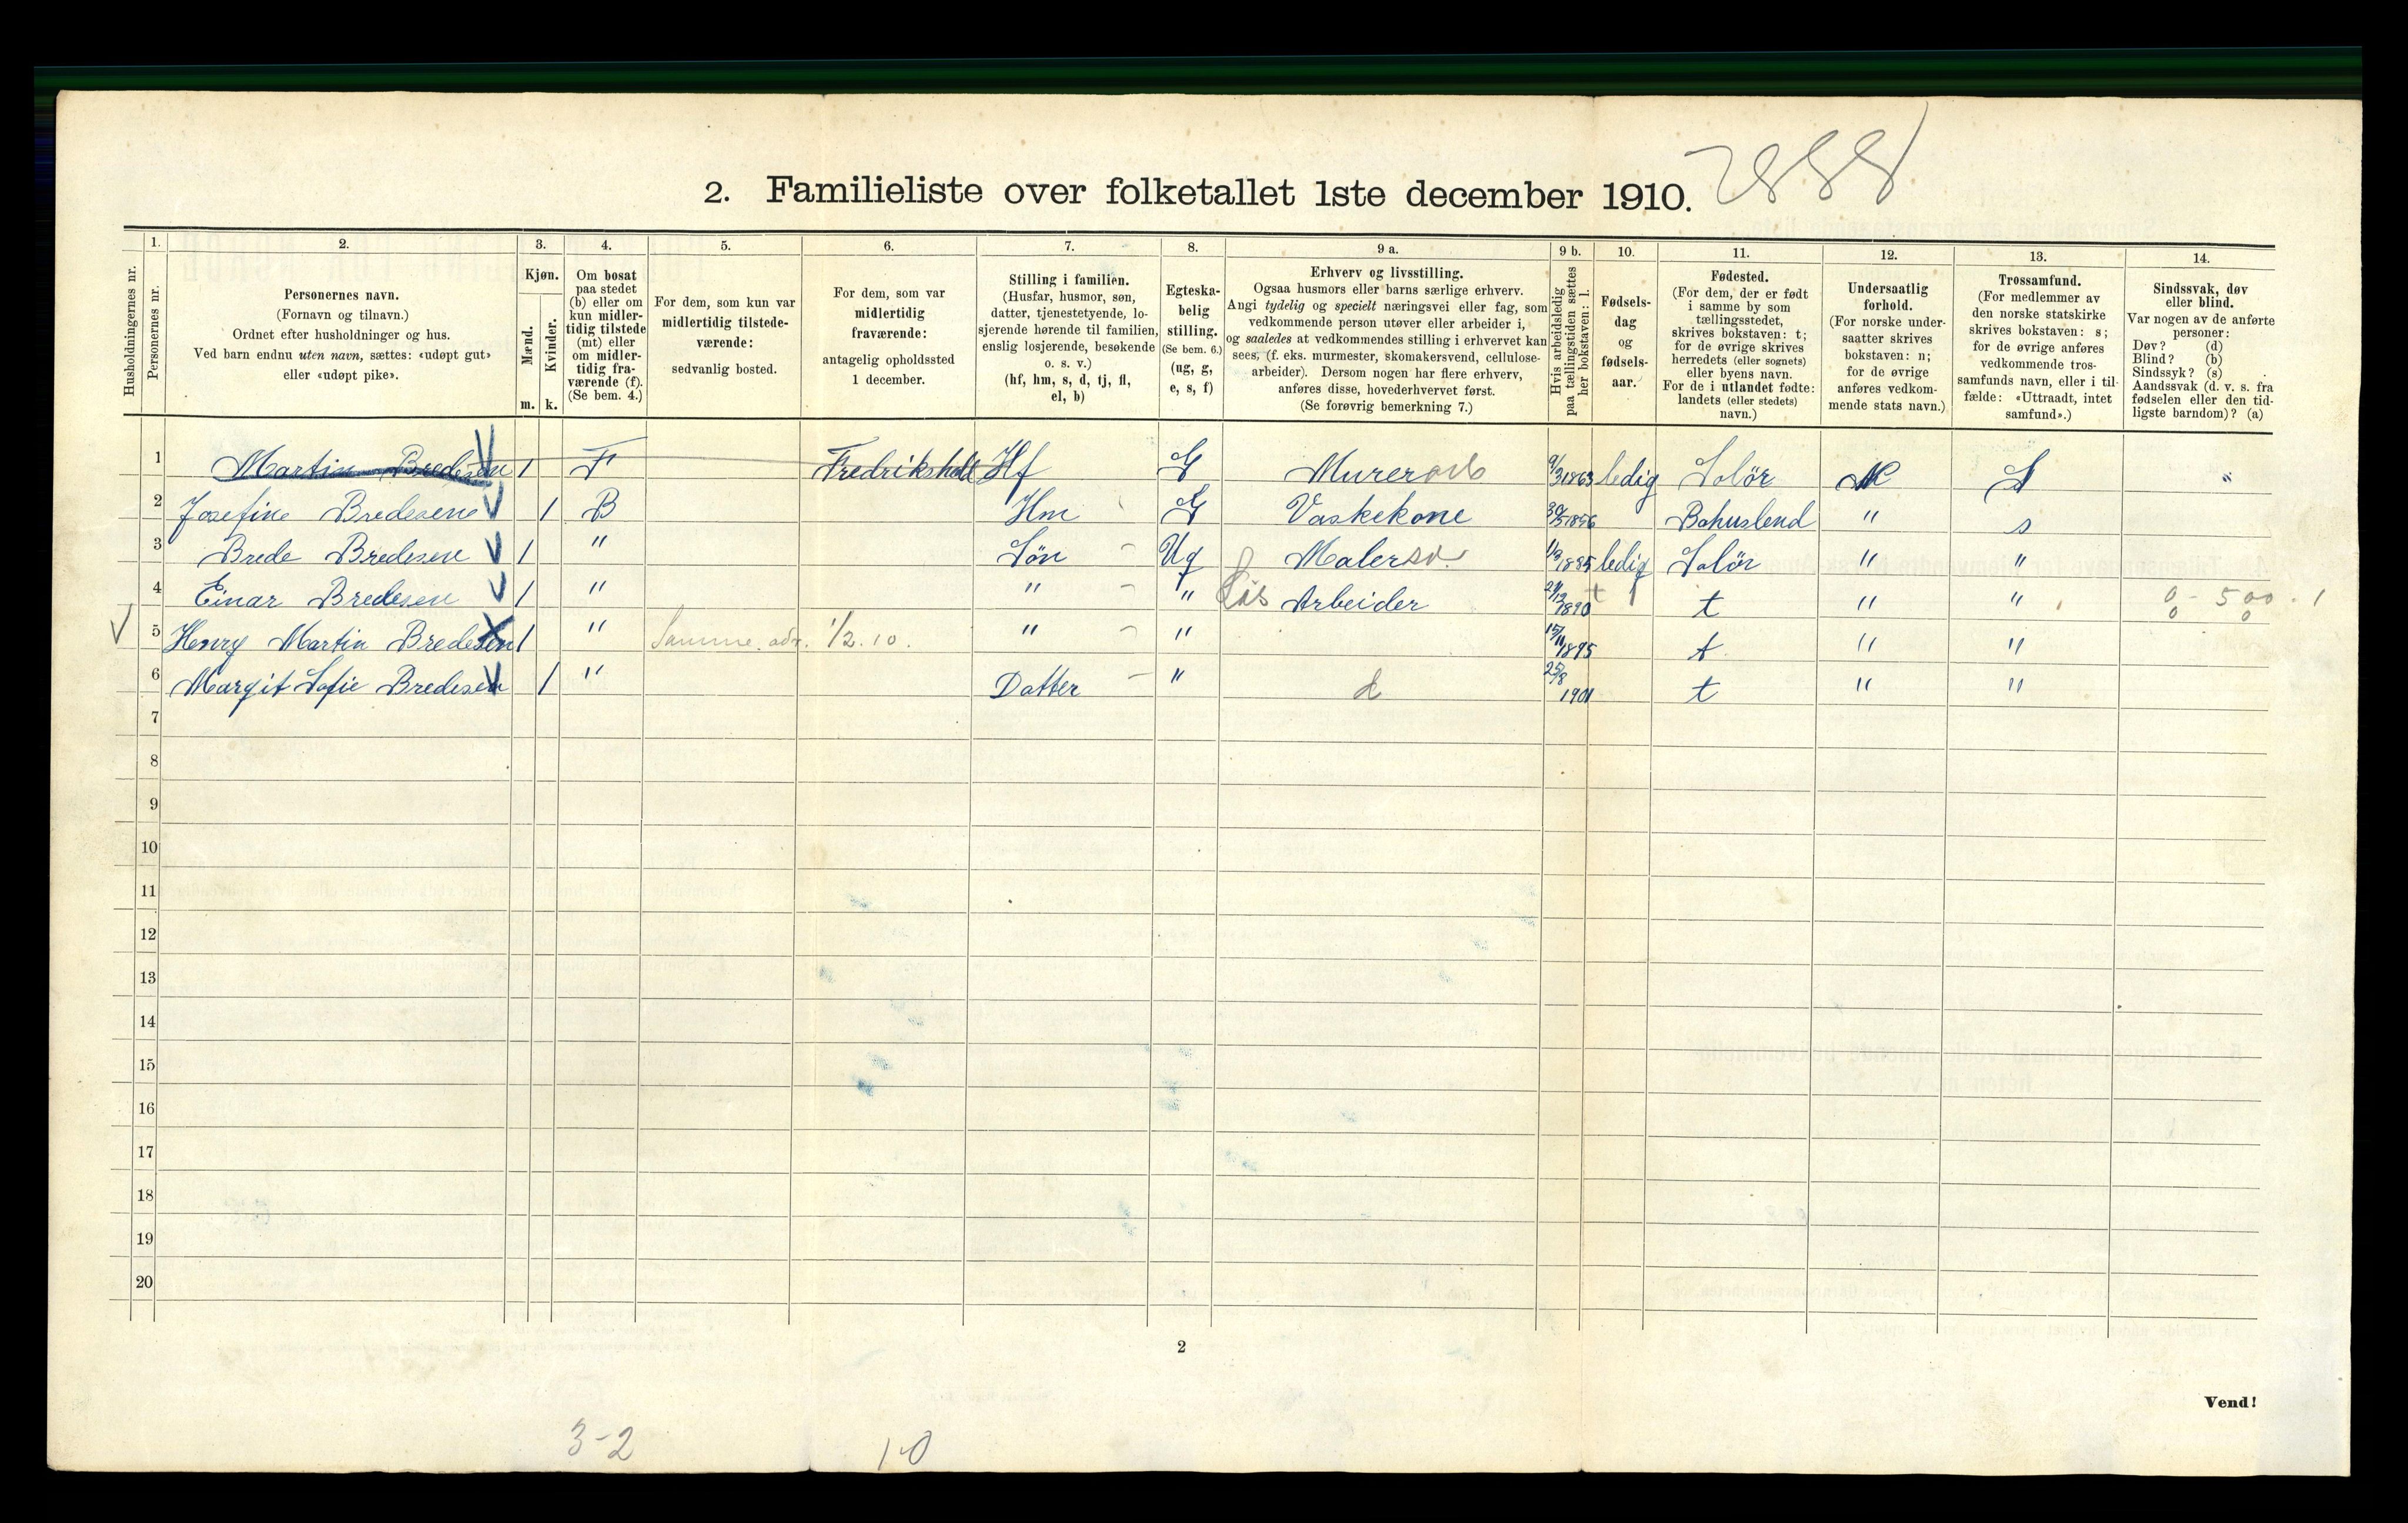 2. Familieliste over folketallet 1ste december 1910.
2888
Husholdningernes nr.
1.
Personernes nr.
2.
Personernes navn.
(Fornavn og tilnavn.)
Ordnet efter husholdninger og hus.
Ved barn endnu uten navn, sættes: «udøpt gut»
eller «udøpt pike».
3.
Kjøn.
Mænd.
Kvinder.
m. k.
4.
Om bosat
paa stedet
(b) eller om
kun midler-
tidig tilstede
(mt) eller
om midler-
tidig fra-
værende (f).
(Se bem. 4.)
5.
For dem, som kun var
midlertidig tilstede-
værende:
sedvanlig bosted.
6.
For dem, som var
midlertidig
fraværende:
antagelig opholdssted
1 december.
7.
Stilling i familien.
(Husfar, husmor, søn,
datter, tjenestetyende, lo-
sjerende hørende til familien,
enslig losjerende, besøkende
o. s. v.)
(hf, hm, s, d, tj, fl,
el, b)
8.
Egteska-
belig
stilling.
(Se bem. 6.)
(ug, g,
e, s, f)
9 a.
Erhverv og livsstilling.
Ogsaa husmors eller barns særlige erhverv.
Angi tydelig og specielt næringsvei eller fag, som
vedkommende person utøver eller arbeider i,
og saaledes at vedkommendes stilling i erhvervet kan
sees, (f. eks. murmester, skomakersvend, cellulose-
arbeider). Dersom nogen har flere erhverv,
anføres disse, hovederhvervet først.
(Se forøvrig bemerkning 7.)
9 b.
Hvis arbeidsledig
paa tællingstiden sættes
her bokstaven: l.
10.
Fødsels-
dag
og
fødsels-
aar.
11.
Fødested.
(For dem, der er født
i samme by som
tællingsstedet,
skrives bokstaven: t;
for de øvrige skrives
herredets (eller sognets)
eller byens navn.
For de i utlandet fødte:
landets (eller stedets)
navn.)
12.
Undersaatlig
forhold.
(For norske under-
saatter skrives
bokstaven: n;
for de øvrige
anføres vedkom-
mende stats navn.)
13.
Trossamfund.
(For medlemmer av
den norske statskirke
skrives bokstaven: s;
for de øvrige anføres
vedkommende tros-
samfunds navn, eller i til-
fælde: «Uttraadt, intet
samfund».)
14.
Sindssvak, døv
eller blind.
Var nogen av de anførte
personer:
Døv? (d)
Blind? (b)
Sindssyk? (s)
Aandssvak (d. v. s. fra
fødselen eller den tid-
ligste barndom)? (a)
1 Martin Bredesen 1 F Fredrikshald Hf G Murerarb 9/3 1863 ledig Solör N S "
2 Josefine Bredesen 1 B Hm G Vaskekone 30/5 1856 Bohuslend " s
3 Brede Bredesen 1 " Sön Ug Malersv. 1/3 1885 ledig Solör " "
4 Einar Bredesen 1 " " " Arbeider 21/12 1890 t 1 t " " 0 - 500 . 1
0 0
5 Henry Martin Bredesen 1 " Samme adr. 1/2.10. " " 15/11 1895 t " "
6 Margit Sofie Bredesen 1 " Datter " d 25/8 1901 t " "
7
8
9
10
11
12
13
14
15
16
17
18
19
20
2
Vend!
3-2
1-0